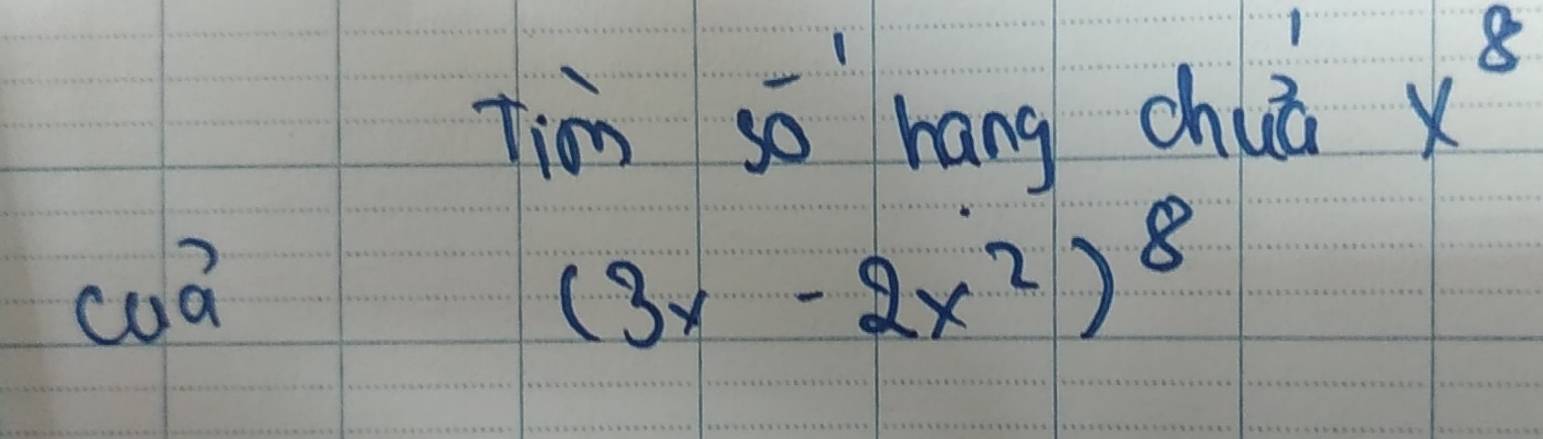 Tìm số hạng chứa x^8
của (3x - 2x^2)^8